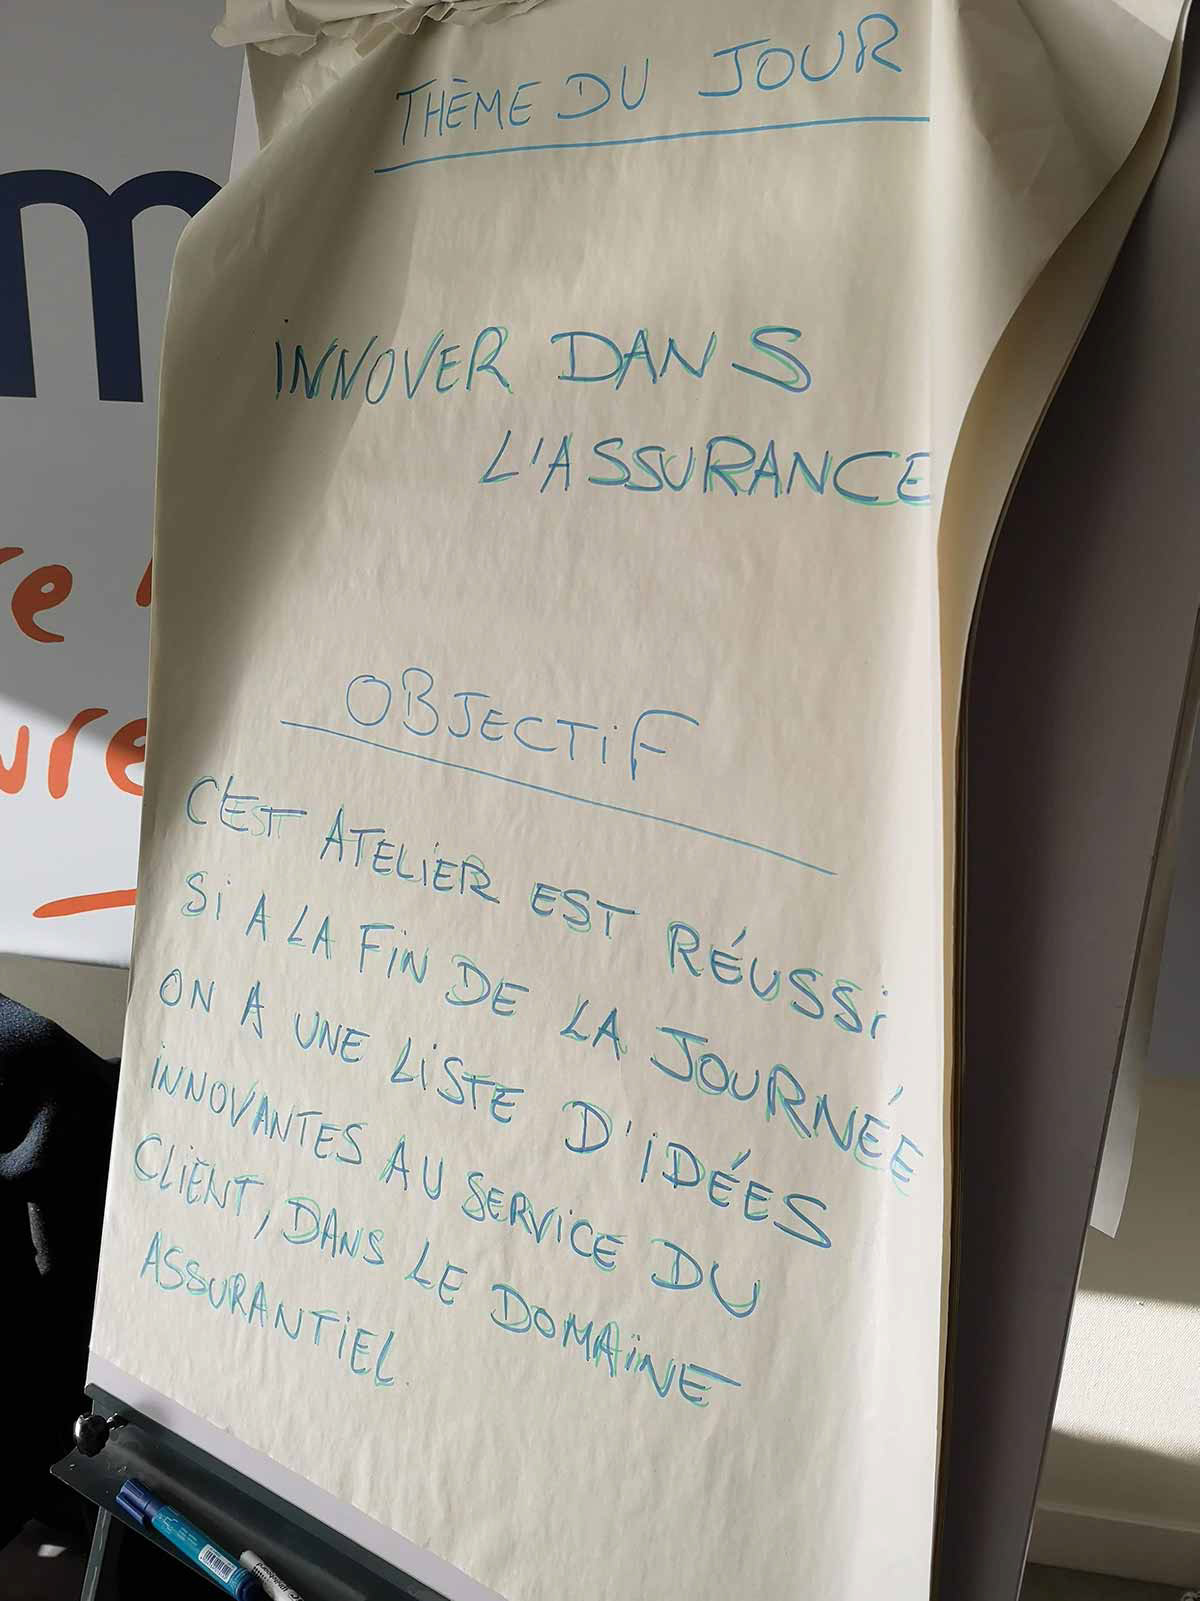 THÈME DU JOUR
INNOVER DANS
L'ASSURANCE
OBJECTIF
C'EST ATELIER EST RÉUSSI
SI A LA FIN DE LA JOURNÉE
ON A UNE LISTE D'IDÉES
INNOVANTES AU SERVICE DU
CLIENT, DANS LE DOMAINE
ASSURANTIEL.
m
re
ure